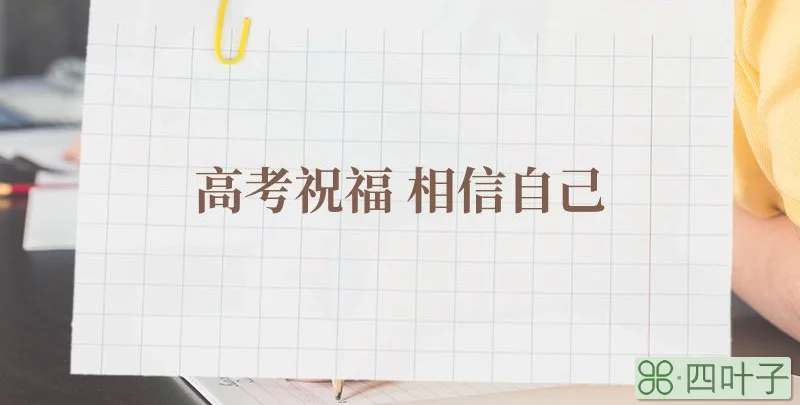 高考祝福 相信自己
四叶子